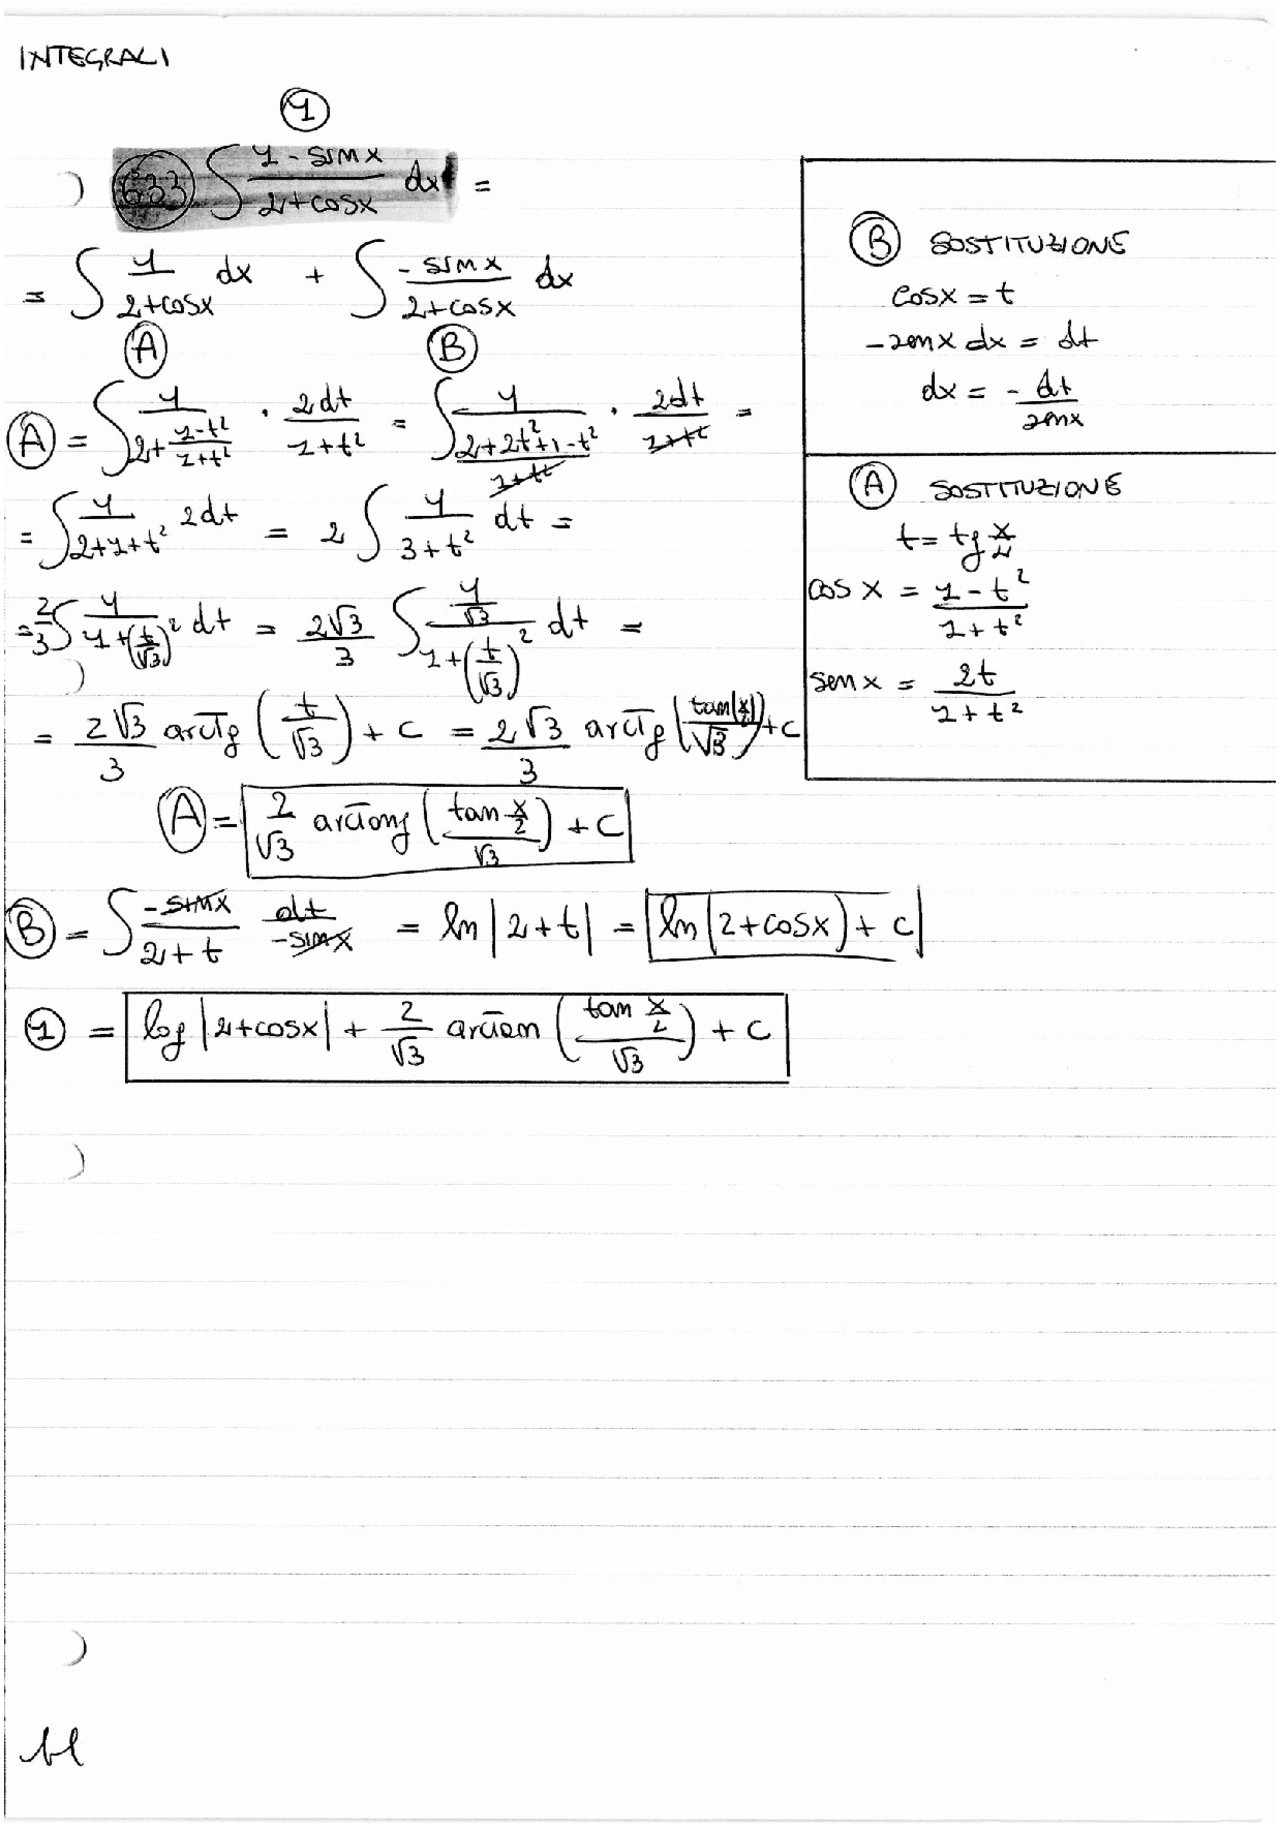 INTEGRALI
①
633 ∫ (1 - sin x)/(2 + cos x) dx =
= ∫ 1/(2+cosx) dx + ∫ (-sin x)/(2+cosx) dx
Ⓐ Ⓑ
Ⓐ = ∫ 1/(2 + (1-t²)/(1+t²)) · 2dt/(1+t²) = ∫ 1/((2+2t²+1-t²)/(1+t²)) · 2dt/(1+t²) =
= ∫ 1/(2+1+t²) 2dt = 2 ∫ 1/(3+t²) dt =
= 2/3 ∫ 1/(1+(t/√3)²) dt = 2√3/3 ∫ (1/√3)/(1+(t/√3)²) dt =
= 2√3/3 arctg (t/√3) + c = 2√3/3 arctg (tan(x/2)/√3) + c
Ⓐ = 2/√3 arctang (tan x/2 / √3) + c
Ⓑ = ∫ (-sin x)/(2+t) dt/(-sin x) = ln |2+t| = ln |2+cosx| + c
① = log |2+cosx| + 2/√3 arctan (tan x/2 / √3) + c
Ⓑ SOSTITUZIONE
cosx = t
-senx dx = dt
dx = - dt/senx
Ⓐ SOSTITUZIONE
t = tg x/2
cos x = (1-t²)/(1+t²)
sen x = 2t/(1+t²)